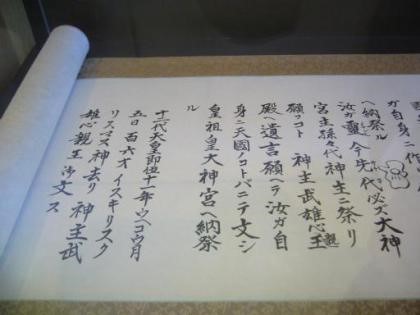 ガ自身ニ作
ヘ納祭ル
汝ガ靈今先代必ズ大神
宮主孫々代神主ニ祭リ
願ッコト 神主武雄心親王
殿ヘ遺言願ヘラ汝ガ自
身ニ天國ノコトバニテ文シ
皇祖皇大神宮ヘ納祭
ル
天皇即位十一年
五日百六才イスキリスク
リスマス神去リ 神主武
雄心親王御文ス